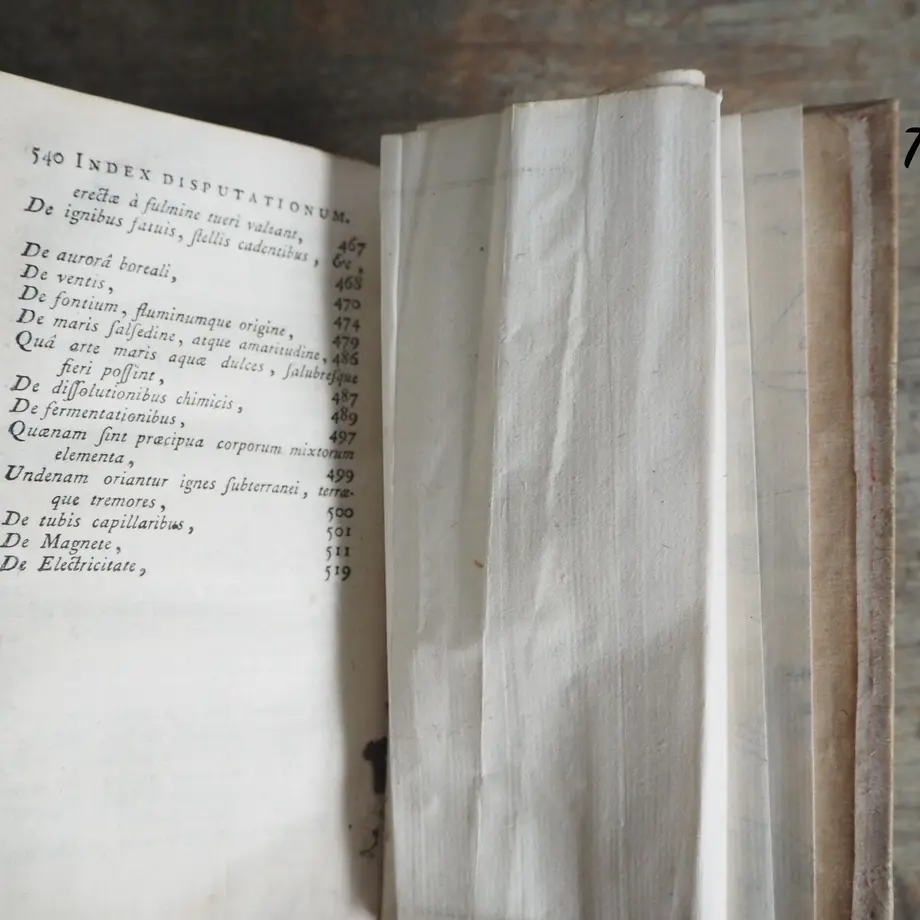 540 INDEX DISPUTATIONUM.
erectæ à fulmine tueri valeant, 467
De ignibus fatuis, ſtellis cadentibus, &c,
468
De aurorâ boreali, 470
De ventis, 474
De fontium, fluminumque origine, 479
De maris ſalſedine, atque amaritudine, 486
Quâ arte maris aquæ dulces, ſalubreſque
fieri poſſint, 487
De diſſolutionibus chimicis, 489
De fermentationibus, 497
Quænam ſint præcipua corporum mixtorum
elementa, 499
Undenam oriantur ignes ſubterranei, terræ-
que tremores, 500
De tubis capillaribus, 501
De Magnete, 511
De Electricitate, 519